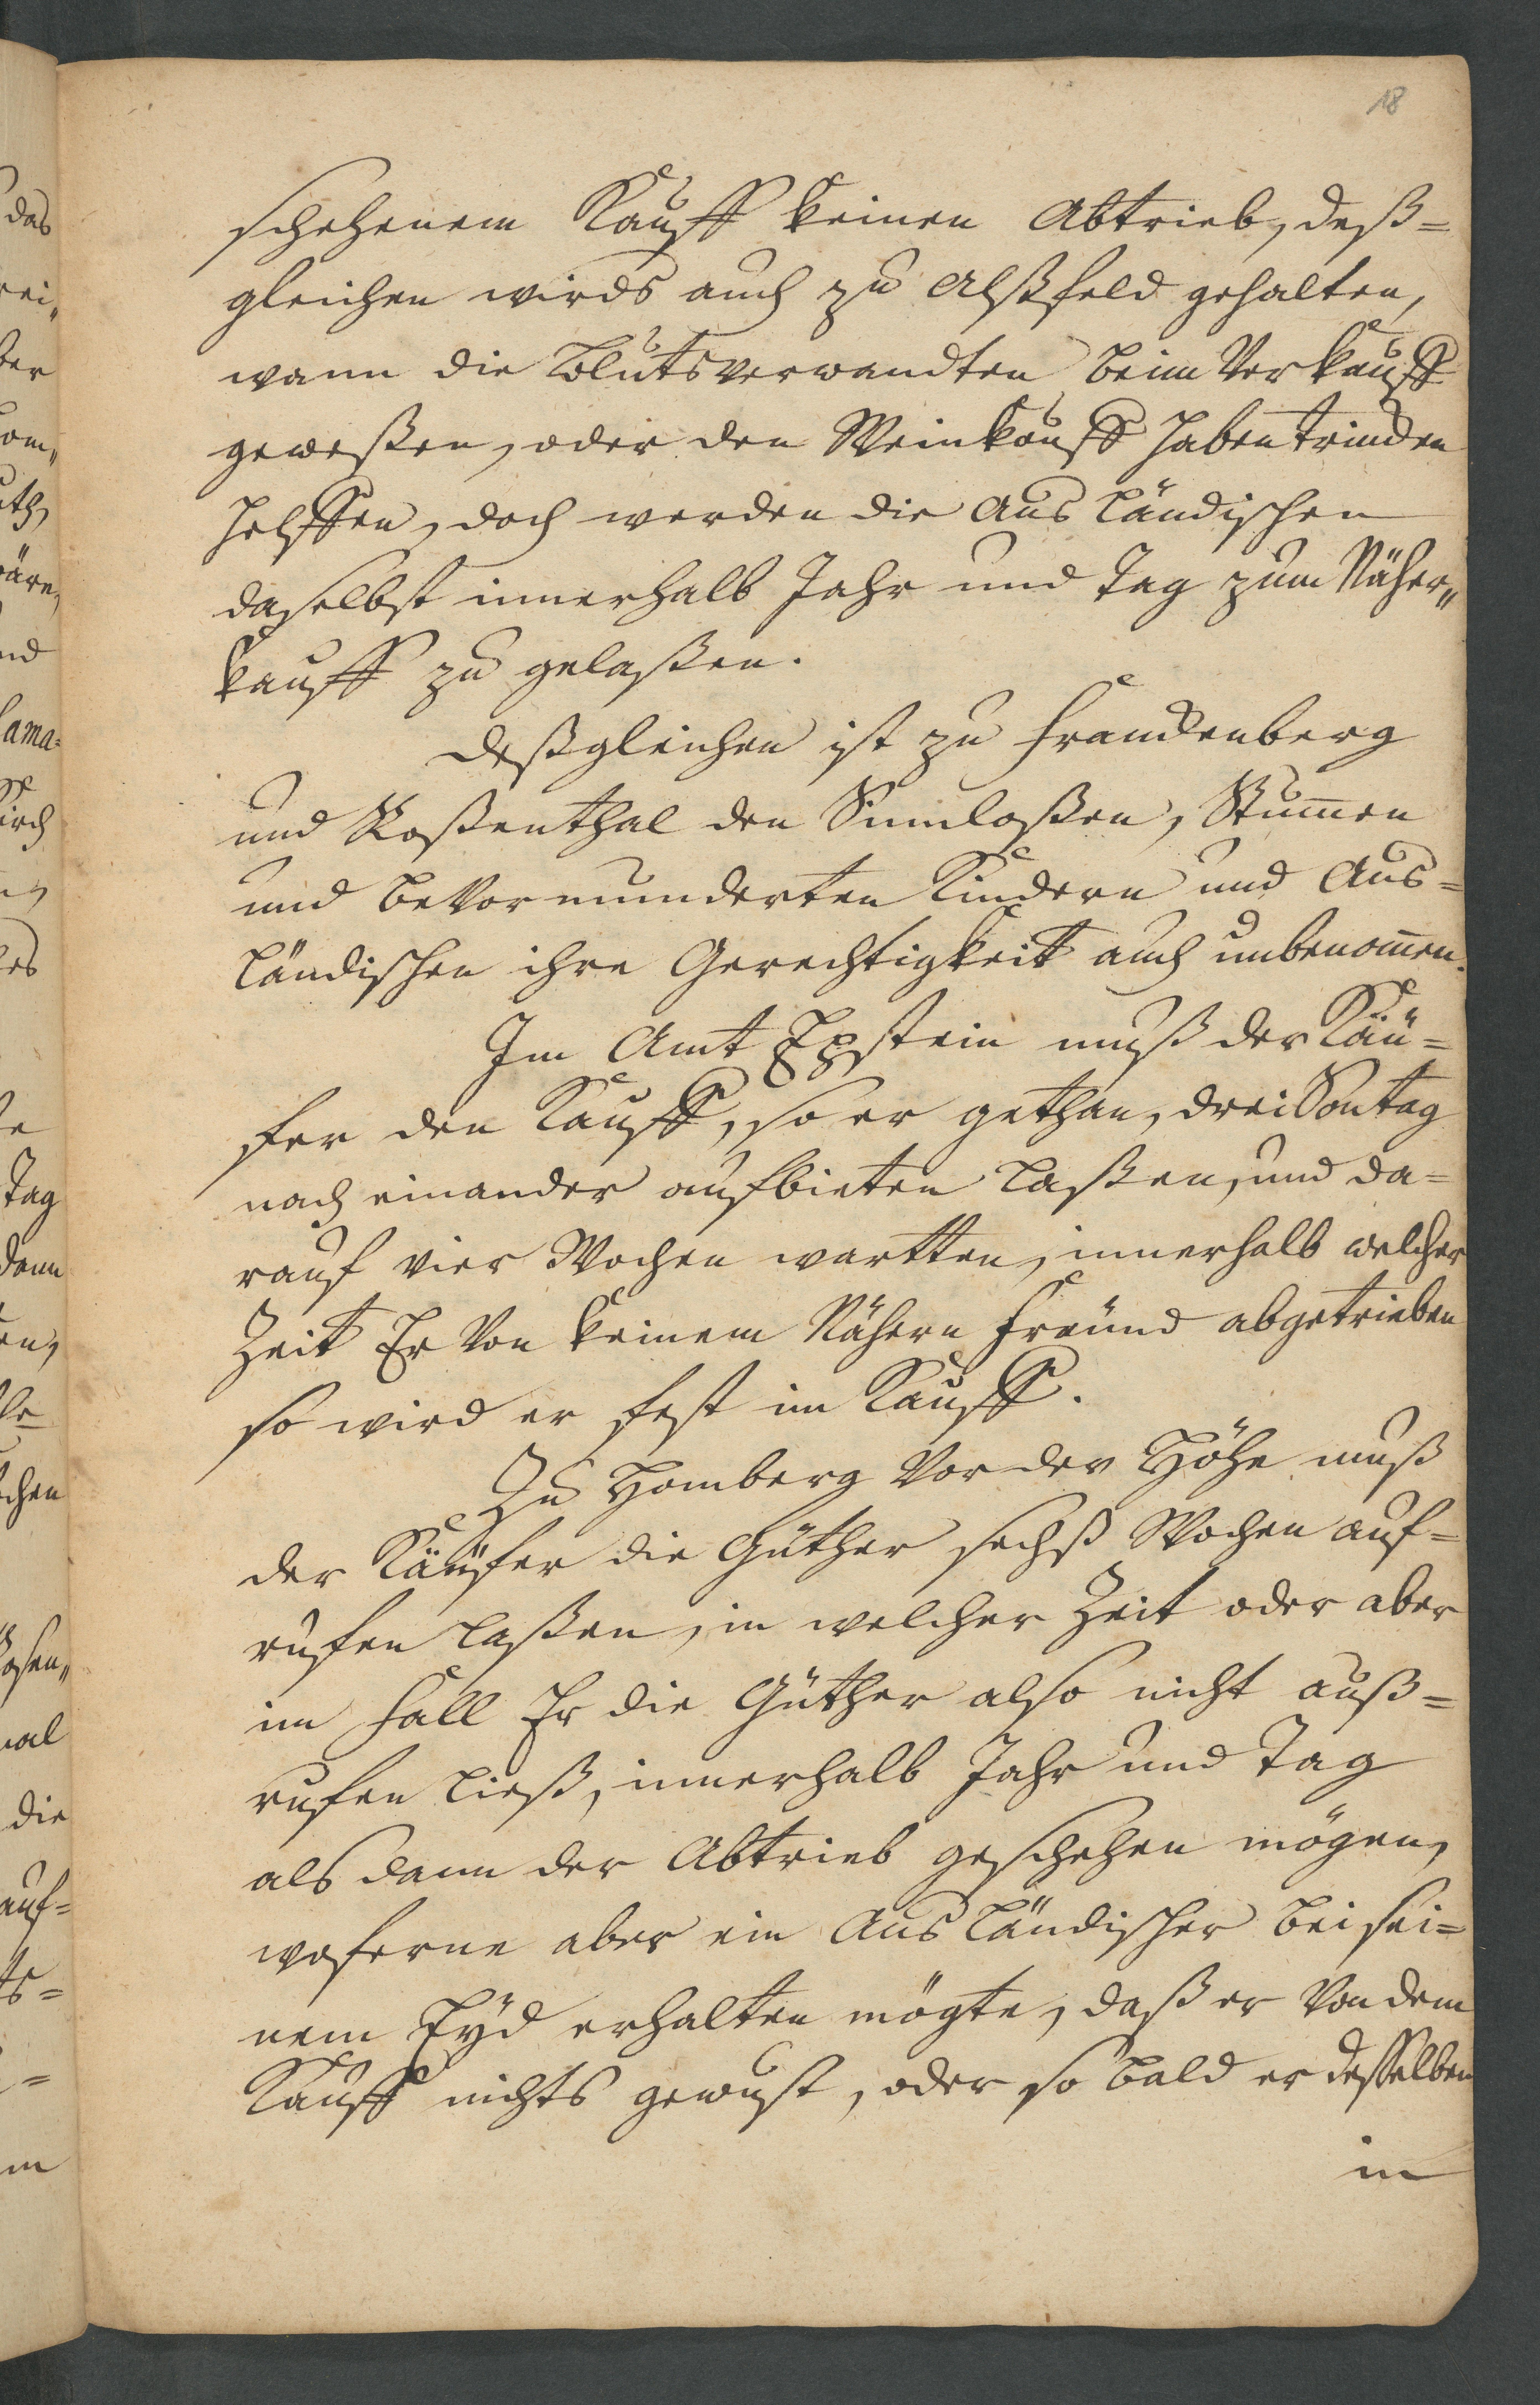 18
schehenem Kauff keinen Abtrieb, deß=
gleichen wirds auch zu Alßfeld gehalten,
wann die Blutsverwandten beim Verkauff
geweßen, oder den Weinkauff haben trincken
helffen, doch werden die Ausländischen
daselbst innerhalb Jahr und Tag zum Näher„
kauff zu gelaßen.
Deßgleichen ist zu Franckenberg
und Roßenthal den Sinnloßen, Stum̄en
und bevormunderten Kindern und Aus=
ländischen ihre Gerechtigkeit auch unbenom̄en.
Im Amt Epstein muß der Käu=
fer den Kauff, so er gethan, drei Sontag
nach einander aufbieten laßen, und da=
rauf vier Wochen wartten, innerhalb welcher
Zeit Er von keinem Nähern Freünd abgetrieben
so wird er fest im Kauff.
Zu Homberg vor der Höhe muß
der Käufer die Güther sechß Wochen auf=
rufen laßen, in welcher Zeit oder aber
im Fall Er die Güther also nicht auß=
rufen ließ, innerhalb Jahr und Tag
als dann der Abtrieb geschehen mögen,
woferne aber ein Ausländischer bei sei=
nem Eyd erhalten mögte, daß er von dem
Kauff nichts gewust, oder so bald er desselben
in
das
ber
Tag
die
auf=